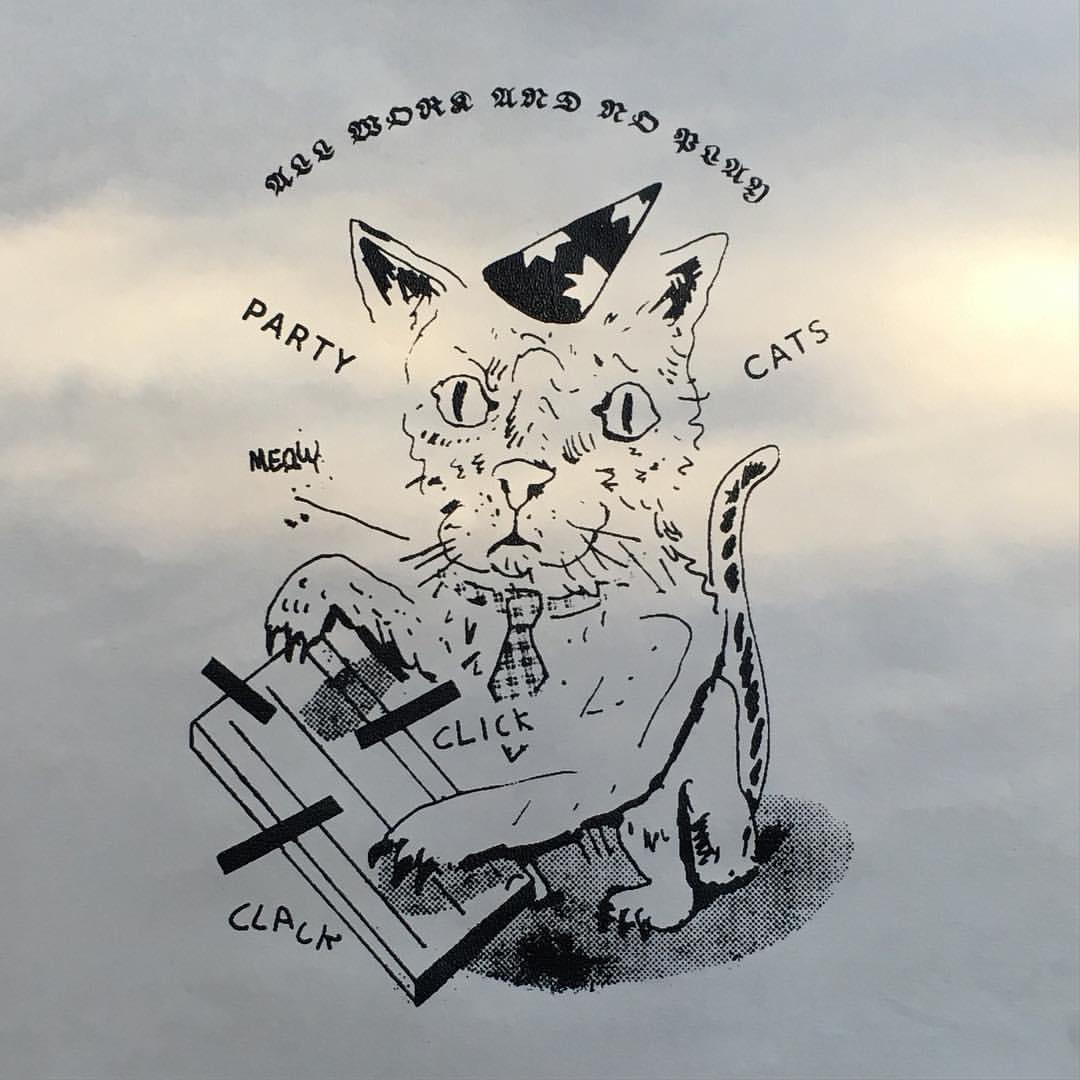 ALL WORK AND NO PLAY
PARTY CATS
MEOW
CLICK
CLACK